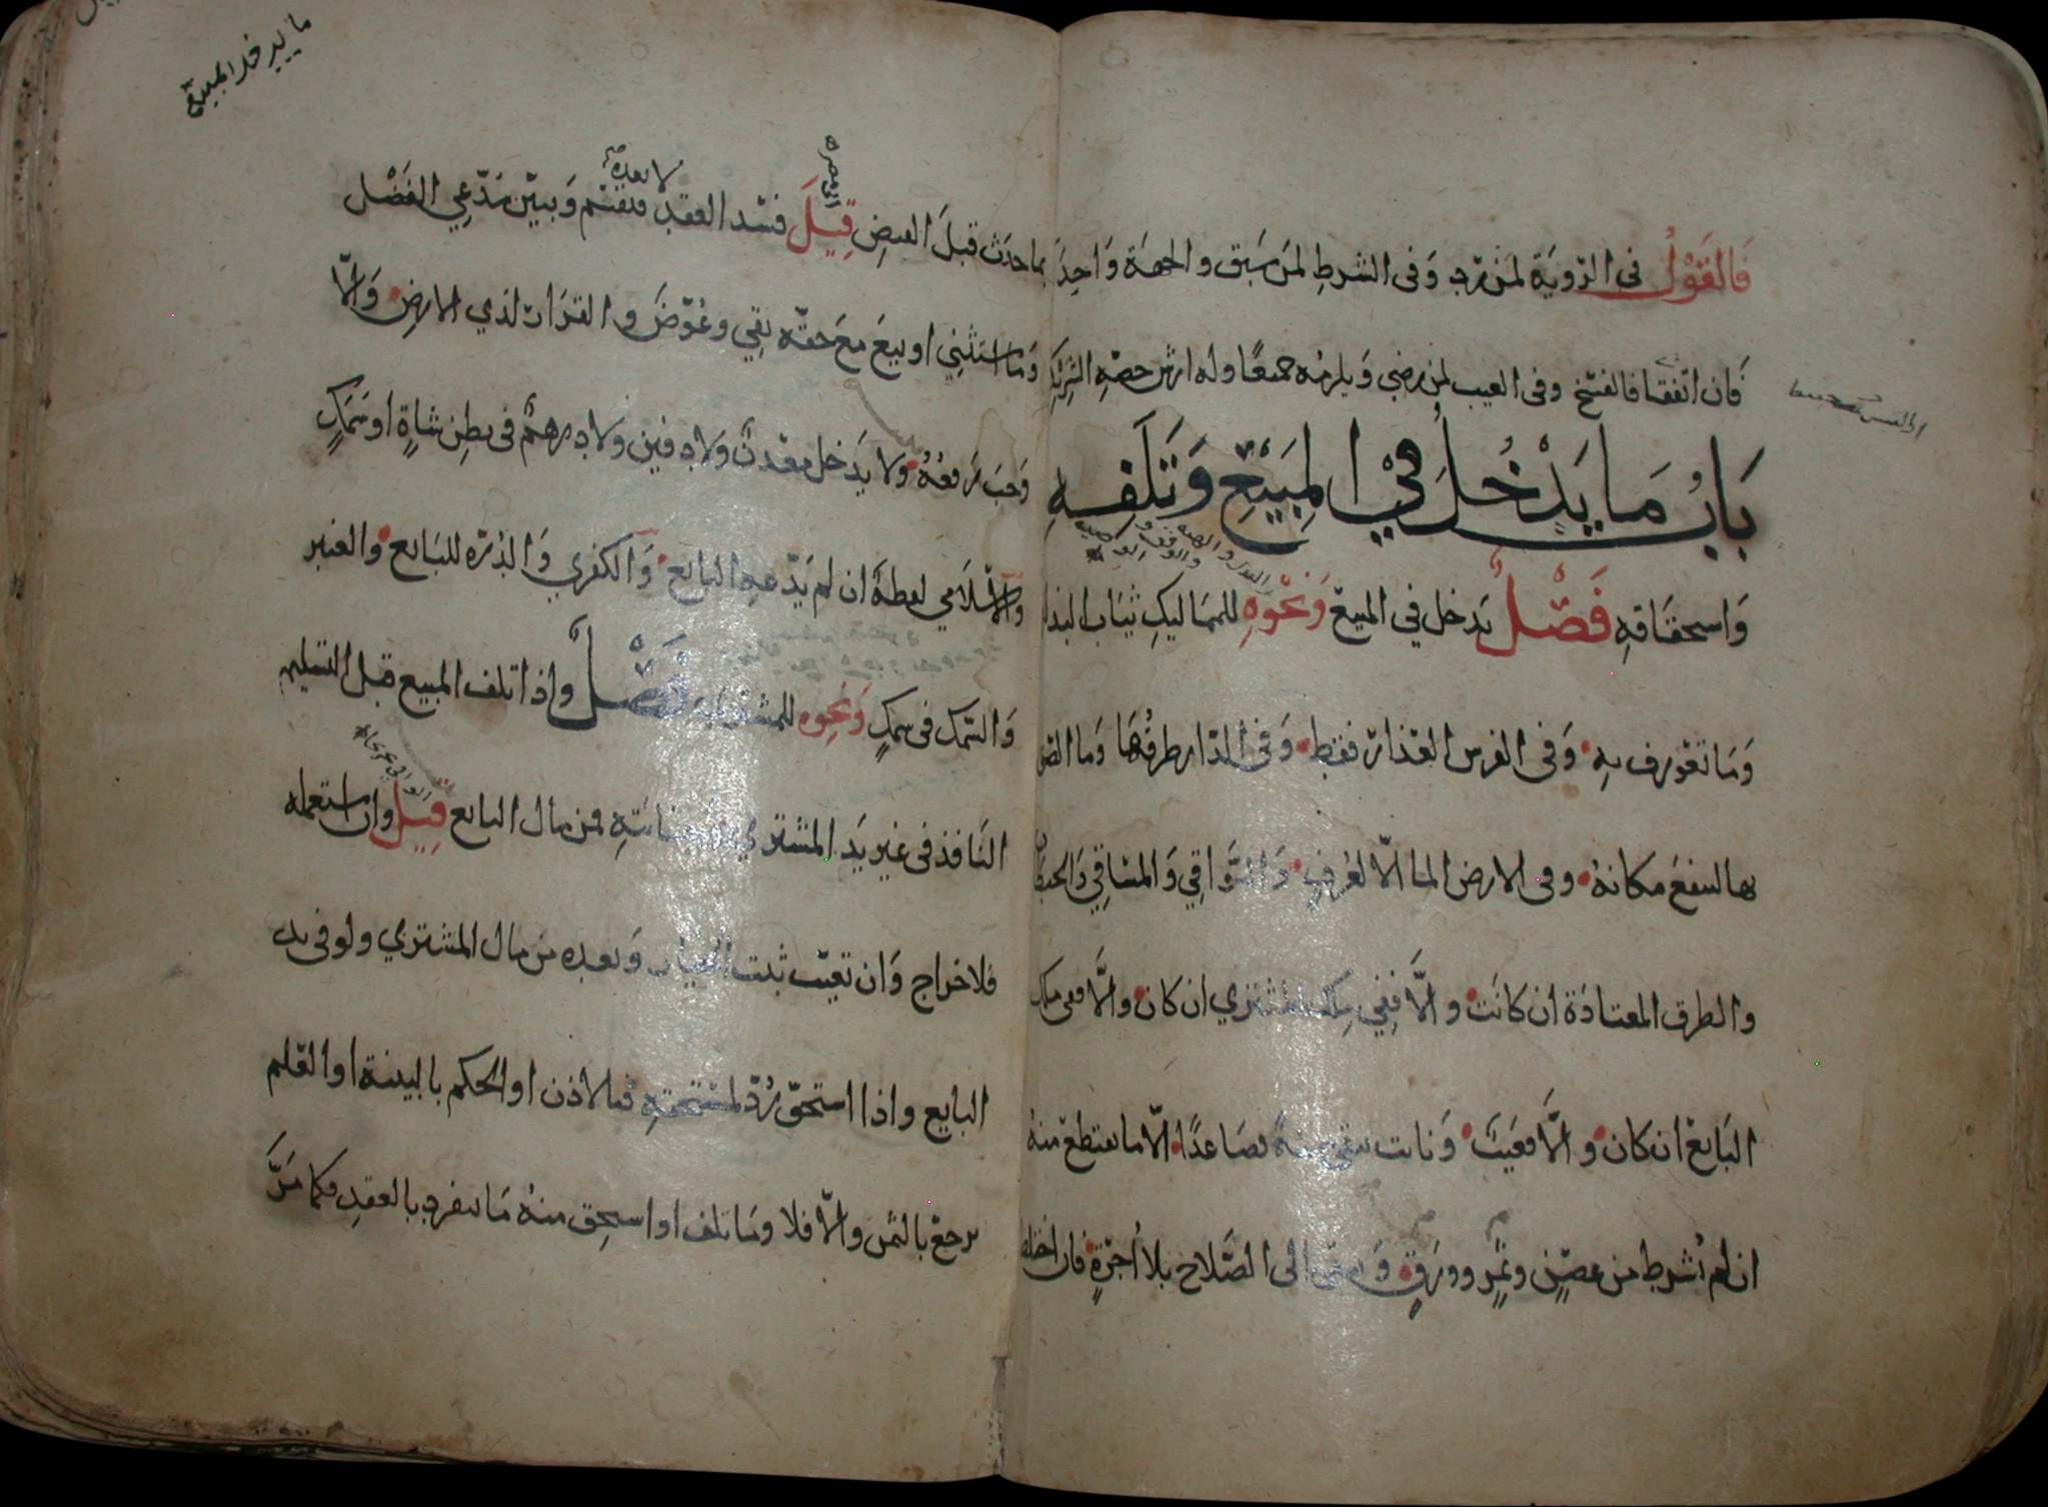 فَالقَوْلُ في الرّويَةِ لمَن رَدّ وَفى الشرطِ لمَن سَبَق والجهَة وَاحِدَ
فَان اتّفقا فالفسْخ وفى العيب لمن رضي وَيلزمُه جميعًا وله ارش حصّةِ الشرِيْكِ
بَابُ مَا يَدْخُلُ فِي المَبِيْعِ وَتَلَفِهِ
وَاستحقَاقهِ فَصْلٌ يَدخل في المبيع وَنَحْوِهِ للممَاليكِ ثيَاب البذلة
وَمَا تعُوْرف بهِ وَفى الفرس العذارُ فقط وَفى الدّار طرقُهَا وَما الصق
بها لينفعَ مكانهُ وفى الارض الما الّا لعُرفٍ وَالسّوَاقي وَالمسَاقي وَالحيطان
والطرق المعتادَة ان كانَت والَّا ففي ملك المشتري ان كان والَّا ففى ملك
البَايعُ ان كان والَّا فعَيب وَنابت يبقى سنةً فصَاعدًا الّا ما يقتطع منهُ
ان لم يُشرط من غصْنٍ وثمَرٍ وورقٍ وَيبقى الى الصَّلاح بلا أُجْرَةٍ فان اختلط
بما حدَث قبلَ القبضِ قِيلَ فسَد العقد لا بعدهُ فيقسم وَبيّن مُدّعي الفَضْل
وَما استُثني او بيعَ مَعَ حقّه بقي وعُوّضَ والقرَار لذي الارضِ وَالّا
وَجَبَ رَفعُهُ ولا يَدخل معْدنٌ ولا دفين ولا درهمٌ فى بطنِ شاةٍ او سَمَكٍ
والاسْلَامي لقطةٌ ان لم يَدّعهِ البايع وَالكفري وَالدُرّة للبَايع والعنبر
وَالسّمك فى سمكٍ وَنَحوِه للمشتري فَصْلٌ واذا تلف المبيع قبل التسليم
النَافذ فى غير يَد المشتري وجنايتهِ فمن مال البايع قِيلَ وان استعمله
فلا خراج وَان تعيّب ثبت الخيار وَبعده من مال المشتري ولو فى يد
البايع واذا استحق رُدّ لمستحقهِ فبالاذن او الحكم بالبينة او العلم
يرجعْ بالثمن والّا فلا ومَا تلف او استحِق منهُ مَا ينفرد بالعقدِ فكما مَرَّ